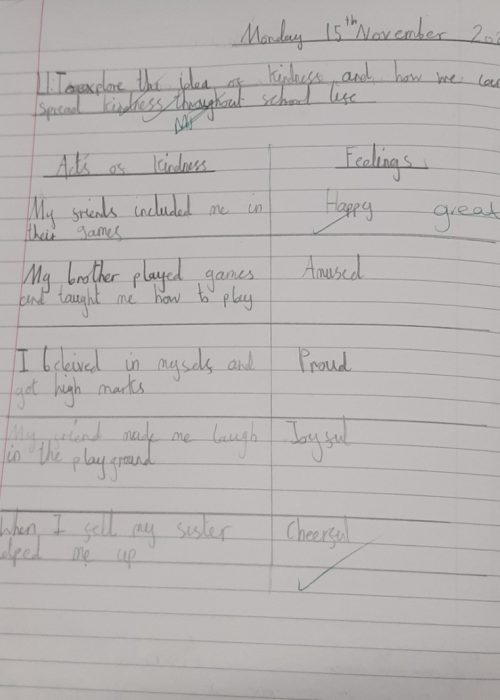 Monday 15th November 20
LI: To explore the idea of kindness and how we can
spread kindness throughout school life
Acts of kindness Feelings
My friends included me in Happy great
their games
My brother played games Amused
and taught me how to play
I beleived in myself and Proud
got high marks
My friend made me laugh Joyful
in the playground
When I fell my sister Cheerful
elped me up